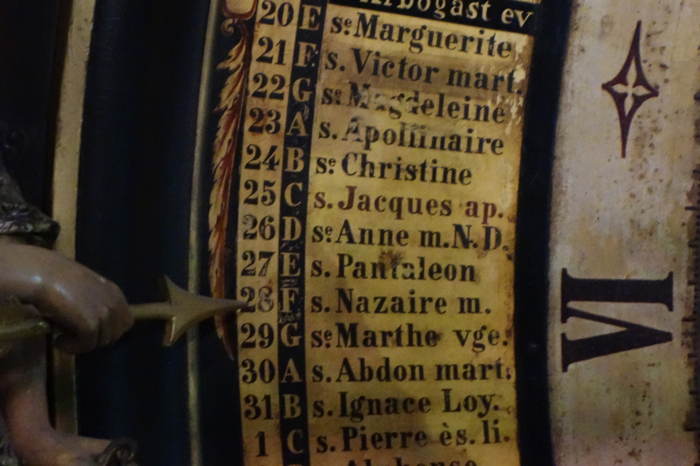 Arbogast ev
20 E sᵉ Marguerite
21 F s. Victor mart.
22 G sᵉ Magdeleine
23 A s. Apollinaire
24 B sᵉ Christine
25 C s. Jacques ap.
26 D sᵉ Anne m. N. D.
27 E s. Pantaleon
28 F s. Nazaire m.
29 G sᵉ Marthe vge.
30 A s. Abdon mart.
31 B s. Ignace Loy.
1 C s. Pierre ès. li.
VI